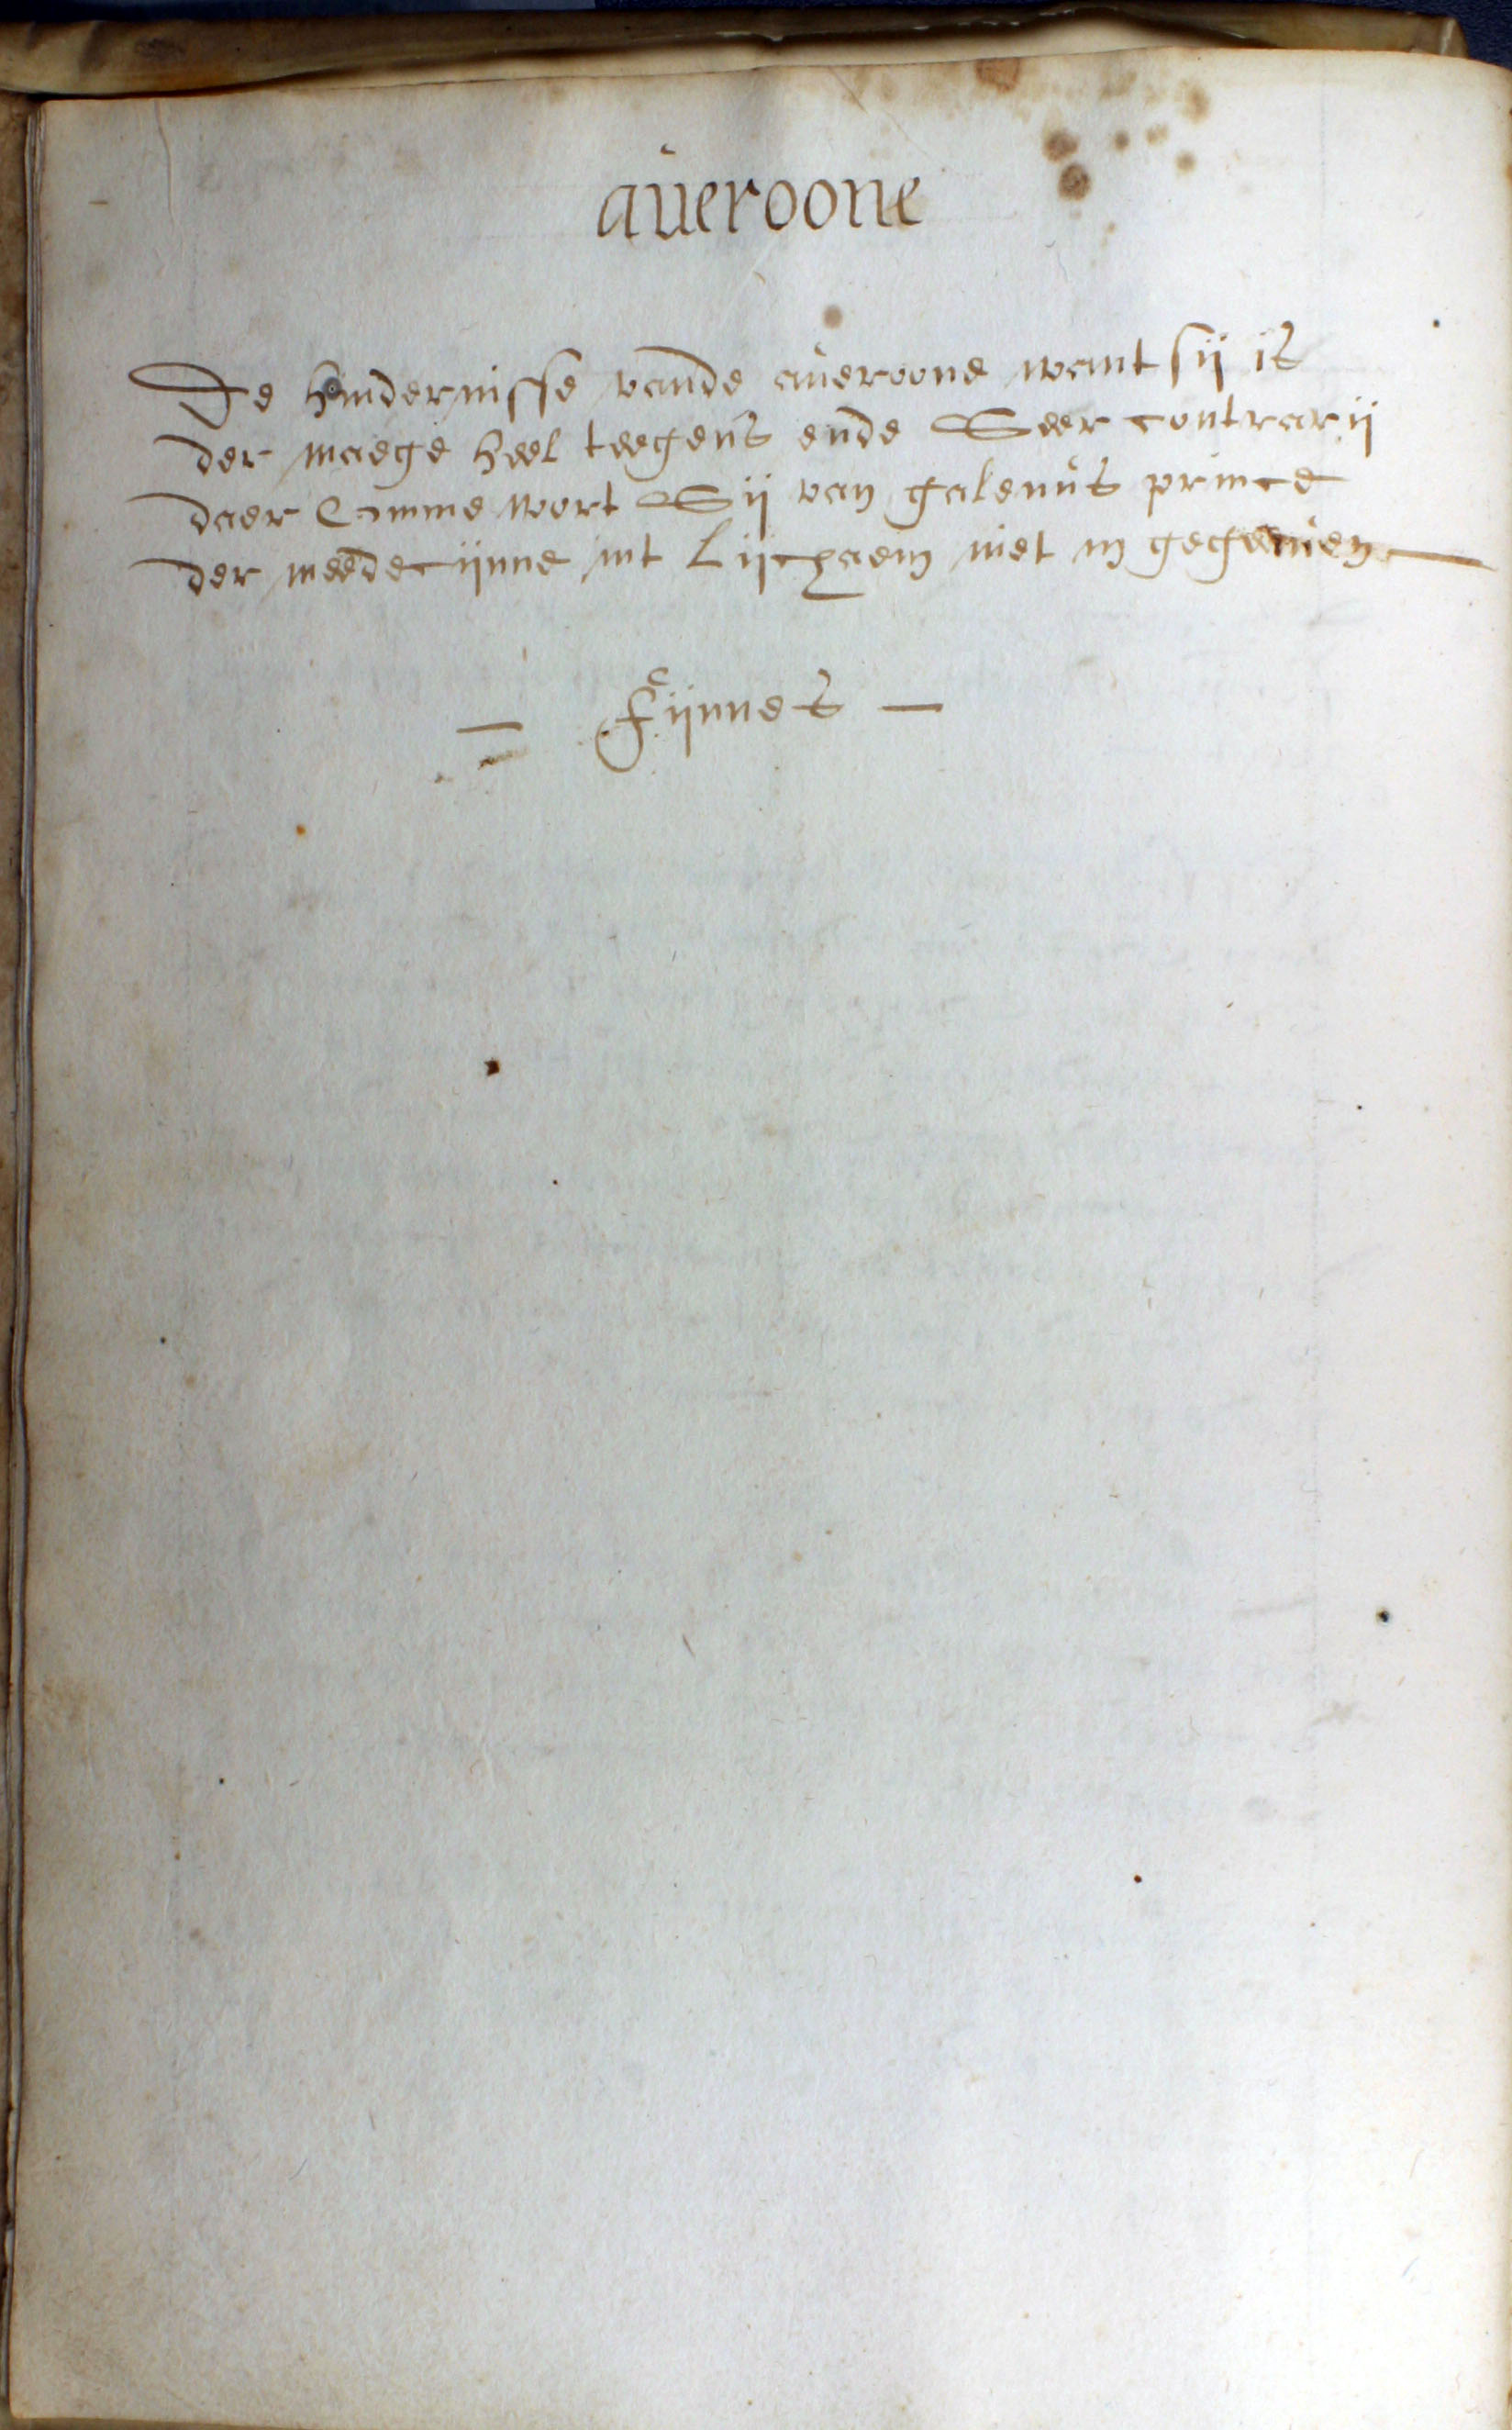 aùeroone
De hindernisse vande aùeroone want sij is
der maege heel teegens ende Seer contrarij
daer Comme wort Sij van galenùs prince
der meedecijnne int Lijchaem niet in gegeeùen
— Fijnnes —